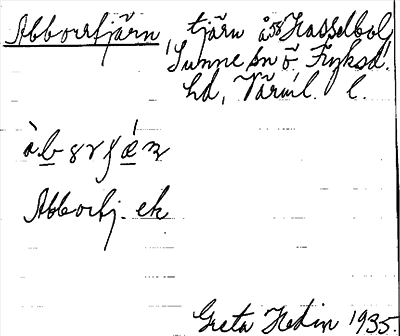 Abborrtjärn, tjärn å Hassdbol,
Sunne sn ö, Fryksd.
hd, Värml. l.
Abbortj. ek
Greta Hedin 1935.